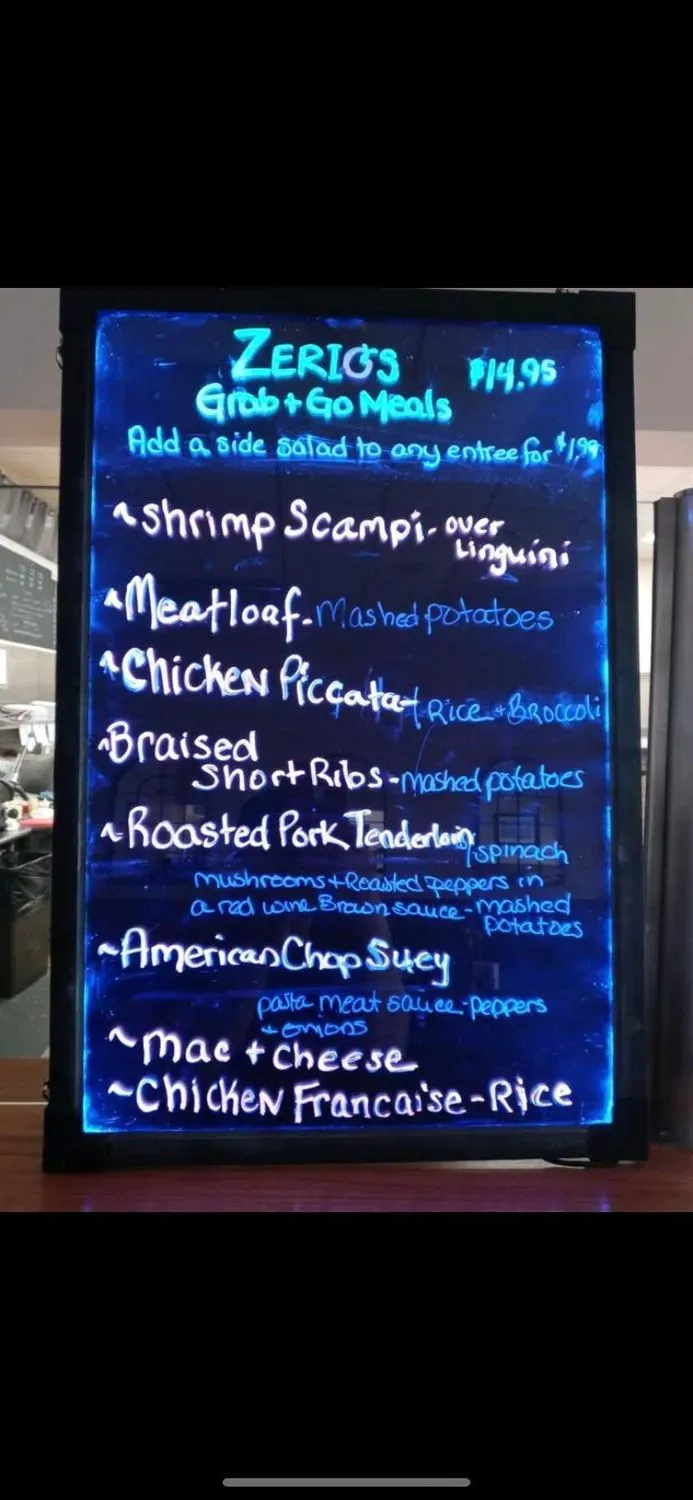 ZERIOS $14.95
Grab + Go Meals
Add a side salad to any entree for $1.99
~Shrimp Scampi - over
Linguini
~Meatloaf - Mashed potatoes
~Chicken Piccata - Rice + Broccoli
~Braised
Short Ribs - mashed potatoes
~Roasted Pork Tenderloin
w/ spinach
mushrooms + Roasted peppers in
a red wine Brown sauce - mashed
potatoes
~American Chop Suey
pasta meat sauce - peppers
+ onions
~Mac + Cheese
~Chicken Francaise - Rice